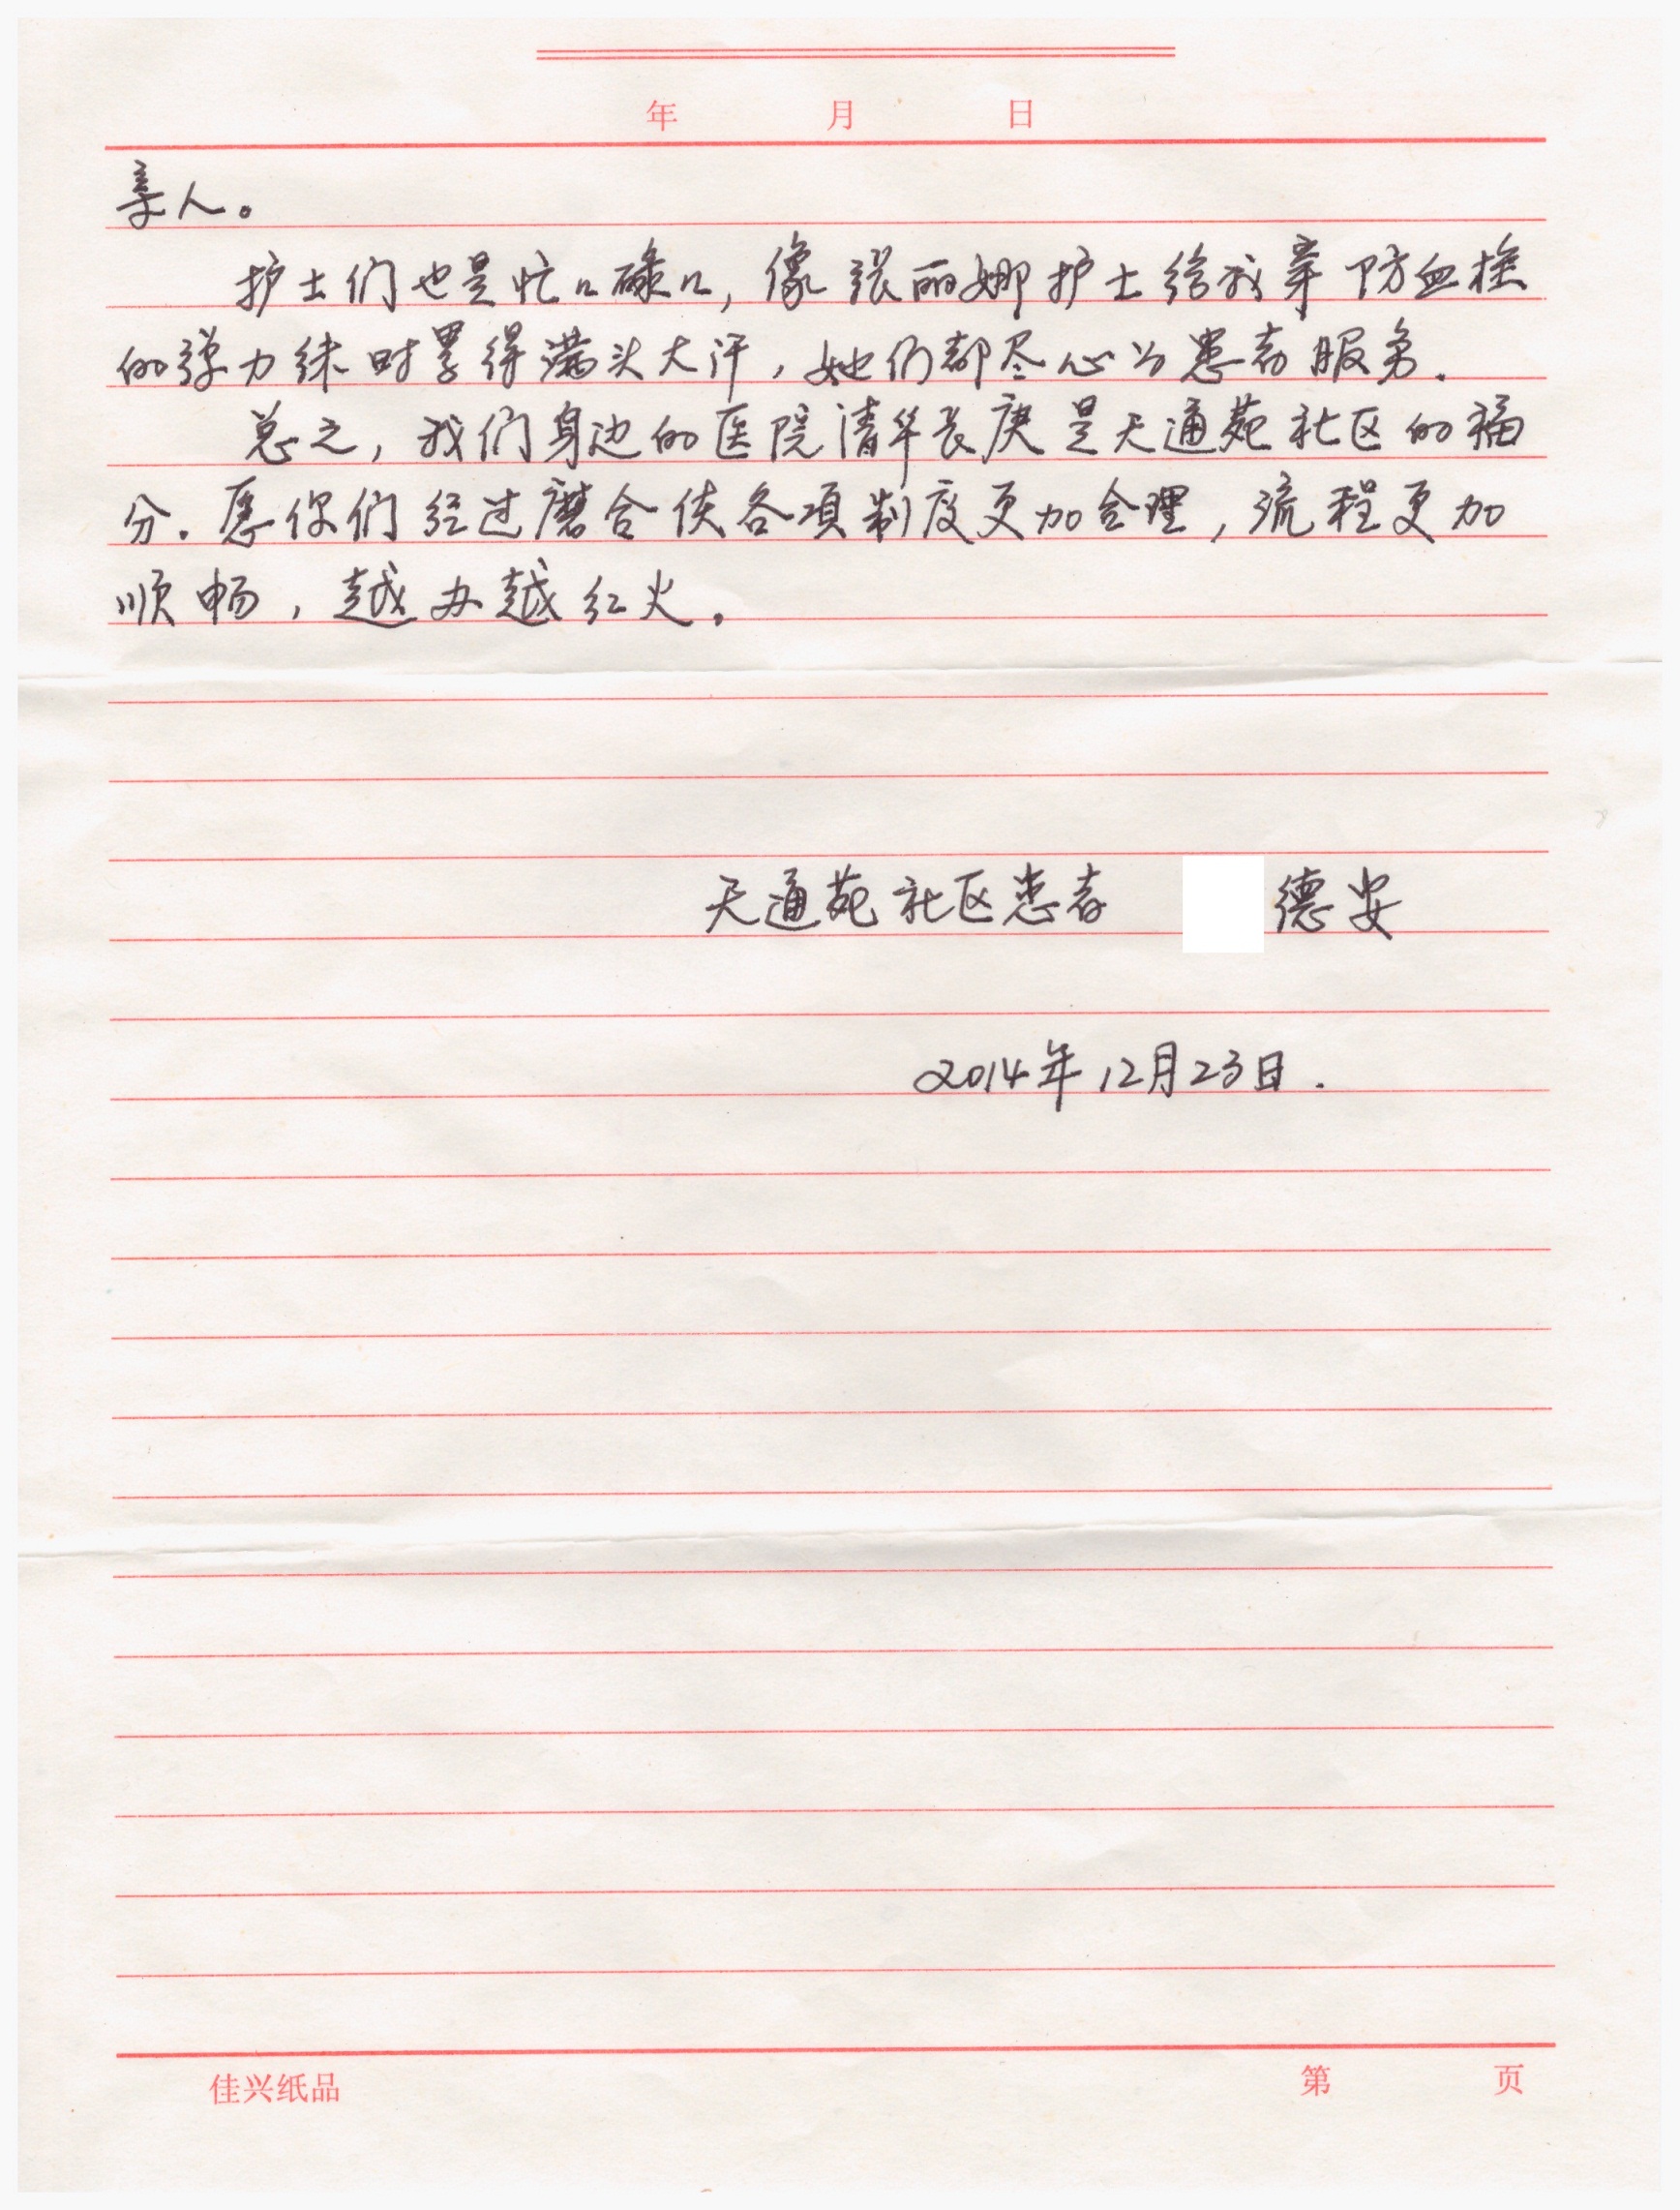 年 月 日
亲人。
护士们也是忙忙碌碌，像张丽娜护士给我穿防血栓
的弹力袜时累得满头大汗，她们都尽心为患者服务.
总之，我们身边的医院清华长庚是天通苑社区的福
分.愿你们经过磨合使各项制度更加合理，流程更加
顺畅，越办越红火。
天通苑社区患者 德安
2014年12月23日.
佳兴纸品 第 页